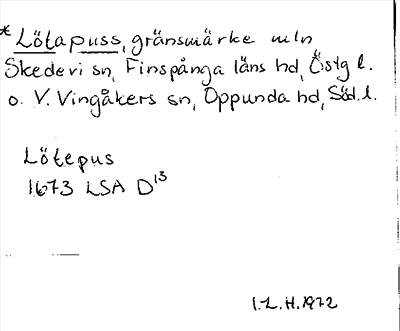 * Lötapuss, gränsmärke mln
Skedevi sn, Finspånga läns hd, Östg l.
o. V. Vingåkers sn, Oppunda hd, Söd. l.
Lötepus
1673 LSA D¹³
I.L.H. 1972